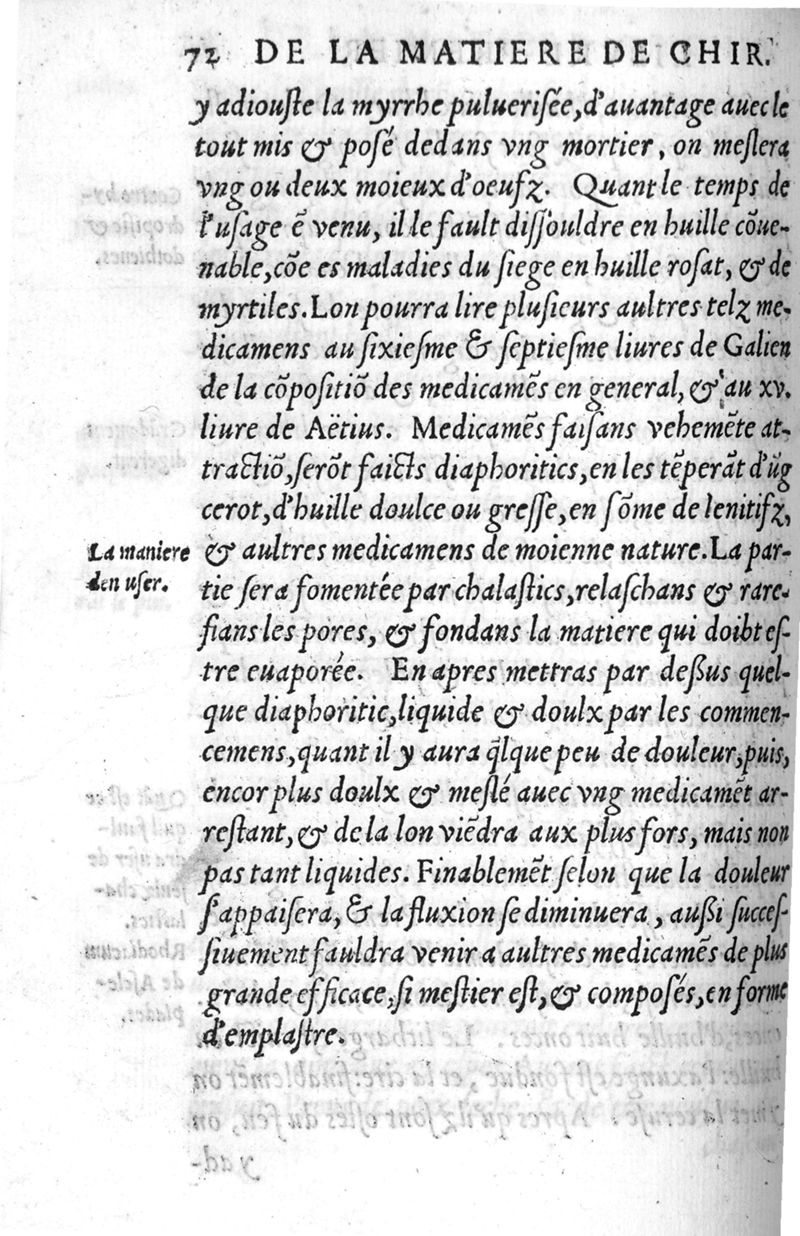 72 DE LA MATIERE DE CHIR.
y adiouſte la myrrhe puluerisée,d'auantage auec le
tout mis & posé dedans vng mortier, on meſlera
vng ou deux moieux d'oeufz. Quant le temps de
l'uſage ē venu, il le fault diſſouldre en huille cōue-
nable,cōe es maladies du ſiege en huille roſat, & de
myrtiles. Lon pourra lire pluſieurs aultres telz me-
dicamens au ſixieſme & ſeptieſme liures de Galien
de la cōpoſitiō des medicamēs en general, & au xv.
liure de Aëtius. Medicamēs faiſans vehemēte at-
tractiō,ſerōt faicts diaphoritics,en les tēperāt d'ūg
cerot,d'huille doulce ou greſſe,en ſōme de lenitifz,
La maniere
den uſer.
& aultres medicamens de moienne nature. La par-
tie ſera fomentée par chalaſtics,relaſchans & rare-
fians les pores, & fondans la matiere qui doibt eſ-
tre euaporée. En apres mettras par deßus quel-
que diaphoritic,liquide & doulx par les commen-
cemens,quant il y aura q̄lque peu de douleur,puis,
encor plus doulx & meſlé auec vng medicamēt ar-
reſtant, & de la lon viēdra aux plus fors, mais non
pas tant liquides. Finablemēt ſelon que la douleur
ſ'appaiſera, & la fluxion ſe diminuera, außi ſucceſ-
ſiuement fauldra venir a aultres medicamēs de plus
grande efficace,ſi meſtier eſt, & composés,en forme
d'emplaſtre.